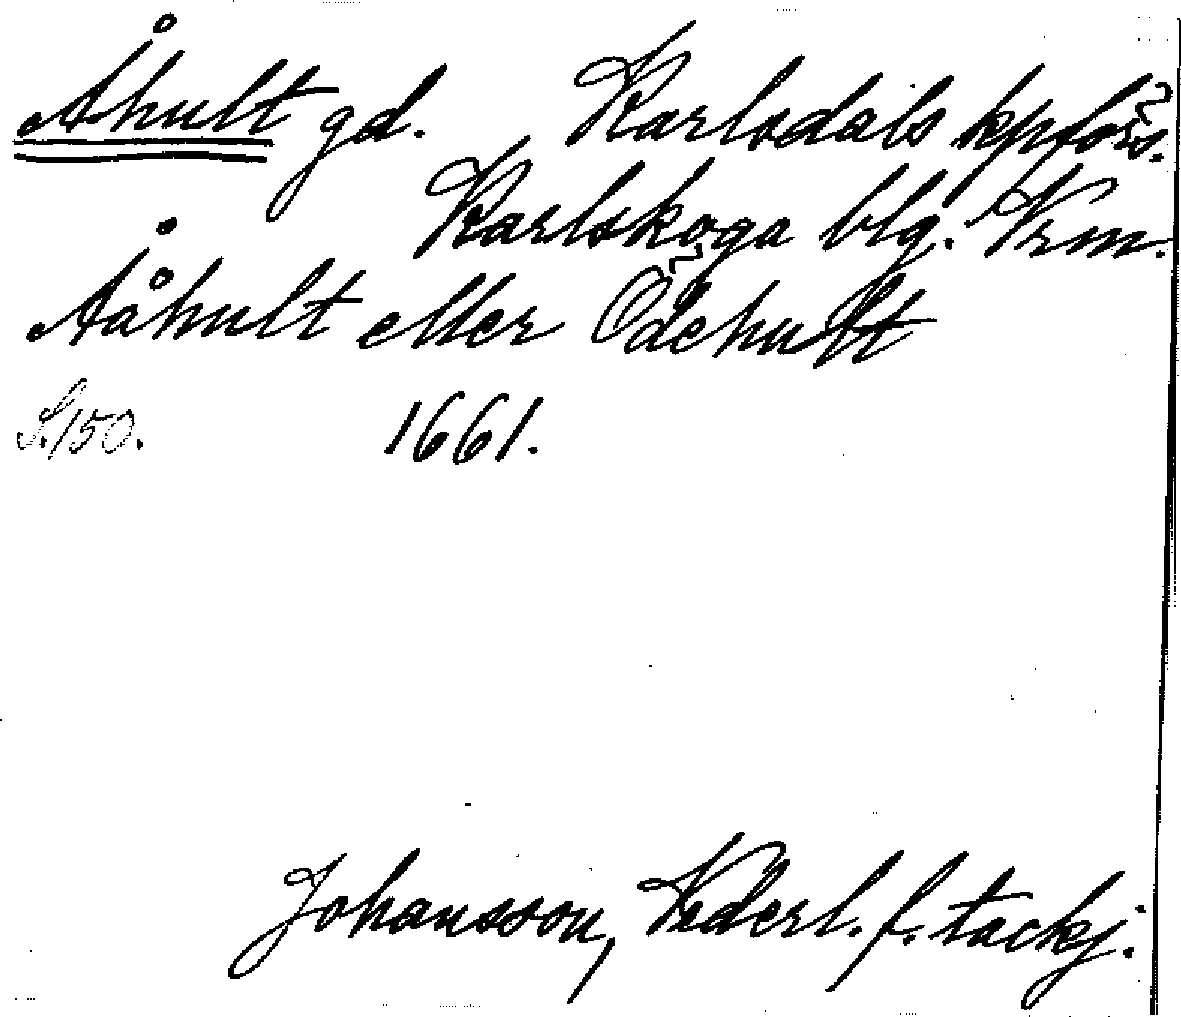 Åhult gd. Karlsdals kpförs.
Karlskoga blg. Vrm.
Aåhult eller Ödehult
S. 150. 1661.
Johansson, Vederl. f. tackj.